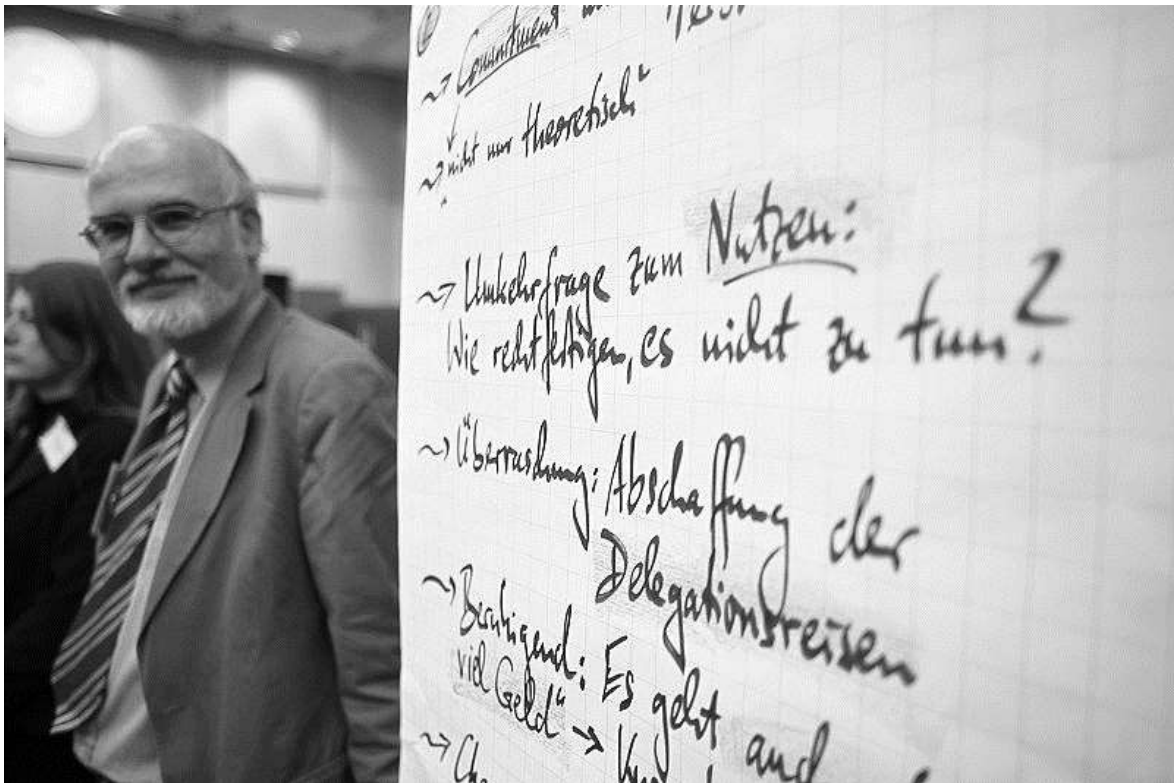 ~> Commitment
~> nicht nur theoretisch"
~> Umkehrfrage zum Nutzen:
Wie rechtfertigen, es nicht zu tun?
~> Überraschung: Abschaffung der
Delegationsreisen
~> Beruhigend: Es geht auch
viel Geld" →